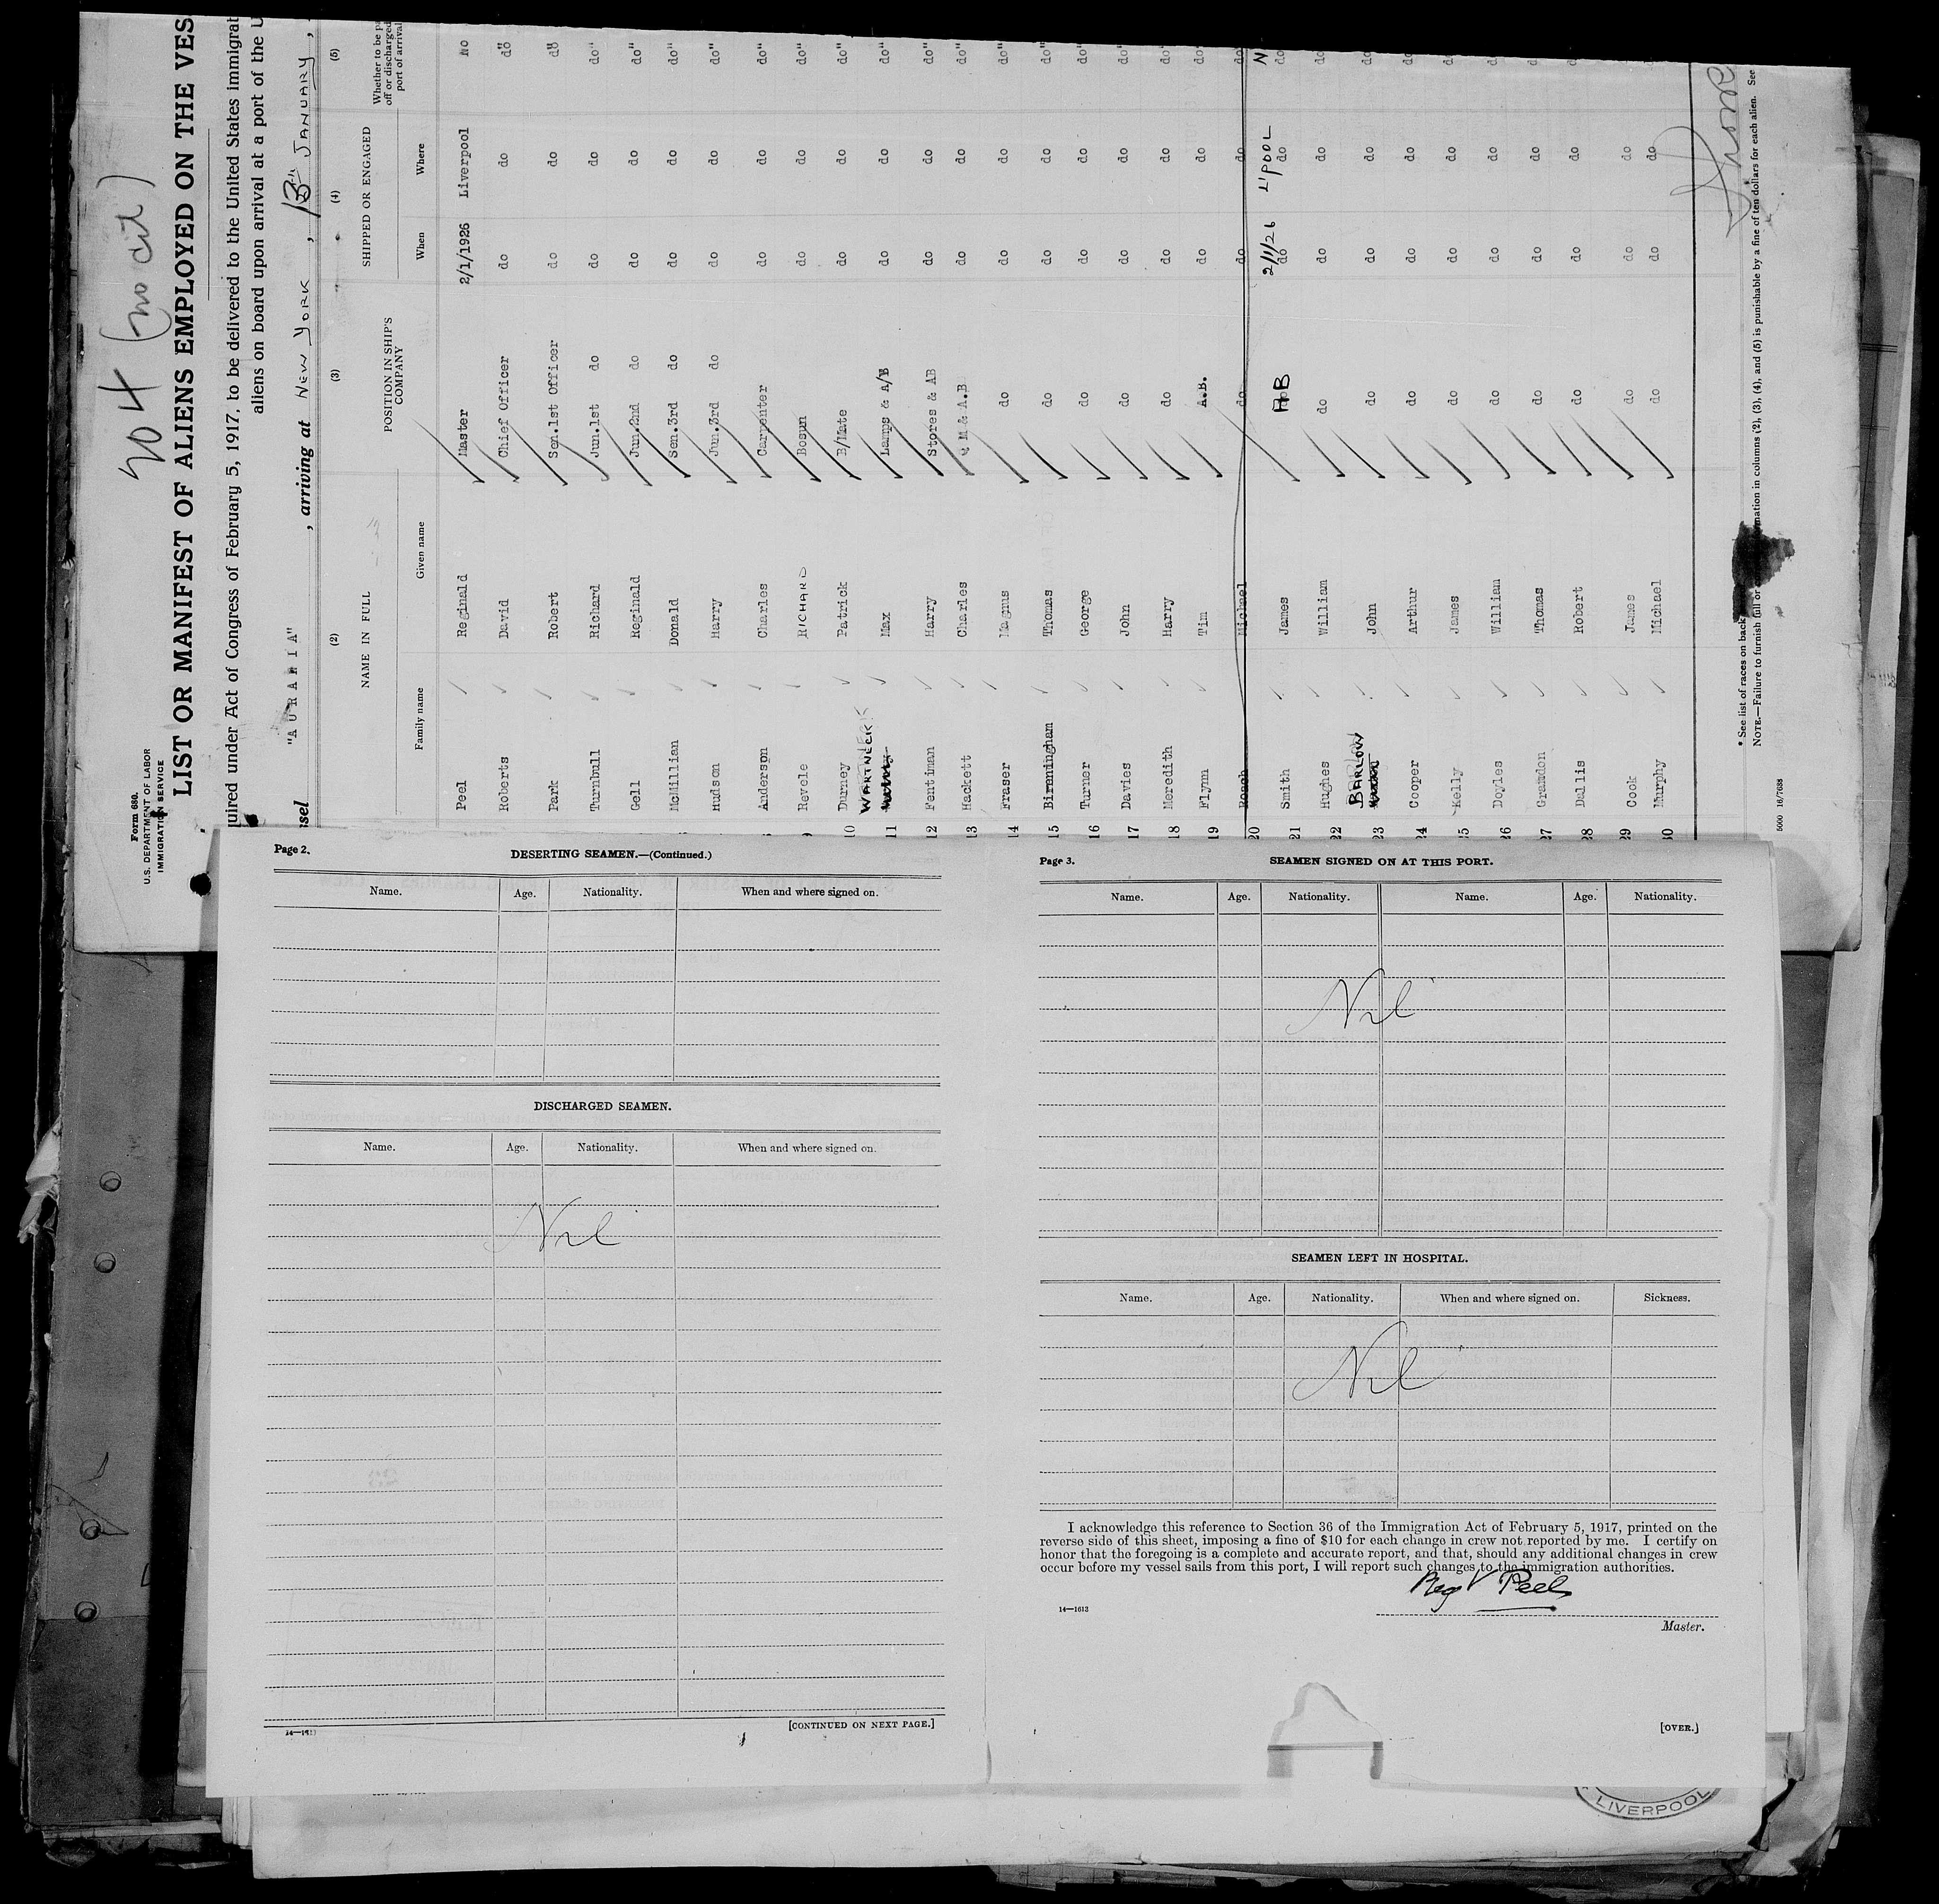 404 (no cit)
Form 680.
U.S. DEPARTMENT OF LABOR
IMMIGRATION SERVICE
LIST OR MANIFEST OF ALIENS EMPLOYED ON THE VES
uired under Act of Congress of February 5, 1917, to be delivered to the United States immigrat
aliens on board upon arrival at a port of the U
ssel "AURANIA" , arriving at NEW YORK , 13th JANUARY ,
(2) (3) (4) (5)
NAME IN FULL POSITION IN SHIP'S COMPANY SHIPPED OR ENGAGED Whether to be p
off or discharged
port of arrival
Family name Given name When Where
Peel Reginald Master 2/1/1926 Liverpool no
Roberts David Chief Officer do do do"
Park Robert Sen.1st Officer do do do"
Turnbull Richard Jun.1st do do do do"
Gell Reginald Jun.2nd do do do do"
McMillian Donald Sen.3rd do do do do"
Hudson Harry Jun.3rd do do do do"
8 Anderson Charles Carpenter do do do"
9 Revcle RICHARD Bosun do do do"
10 Durney Patrick B/Mate do do do"
11 WARTNECK Max Lamps & A/B do do do"
12 Fentiman Harry Stores & AB do do do"
13 Hackett Charles Q M & A.B do do do"
14 Fraser Magnus do do do do"
15 Birmingham Thomas do do do do"
16 Turner George do do do do"
17 Davies John do do do do"
18 Meredith Harry do do do do"
19 Flynn Tim A.B. do do do"
20 Roach Michael do do do do
Smith James AB 2/1/26 L'POOL N
do do do do
21 Hughes William do do do do
22 BARLOW
23 John do do do do
24 Cooper Arthur do do do do
25 Kelly James do do do do
26 Doyles William do do do do
27 Grandon Thomas do do do do
28 Dallis Robert do do do do
29 Cook James do do do do
30 Murphy Michael do do do do
* See list of races on back
NOTE.—Failure to furnish full or mation in columns (2), (3), (4), and (5) is punishable by a fine of ten dollars for each alien. See
5000 16/7638
Page 2.
DESERTING SEAMEN.—(Continued.)
Name. Age. Nationality. When and where signed on.
DISCHARGED SEAMEN.
Name. Age. Nationality. When and where signed on.
Nil
[CONTINUED ON NEXT PAGE.]
Page 3.
SEAMEN SIGNED ON AT THIS PORT.
Name. Age. Nationality. Name. Age. Nationality.
Nil
SEAMEN LEFT IN HOSPITAL.
Name. Age. Nationality. When and where signed on. Sickness.
Nil
I acknowledge this reference to Section 36 of the Immigration Act of February 5, 1917, printed on the
reverse side of this sheet, imposing a fine of $10 for each change in crew not reported by me. I certify on
honor that the foregoing is a complete and accurate report, and that, should any additional changes in crew
occur before my vessel sails from this port, I will report such changes to the immigration authorities.
Reg V Peel
14—1613
Master.
[OVER.]
LIVERPOOL